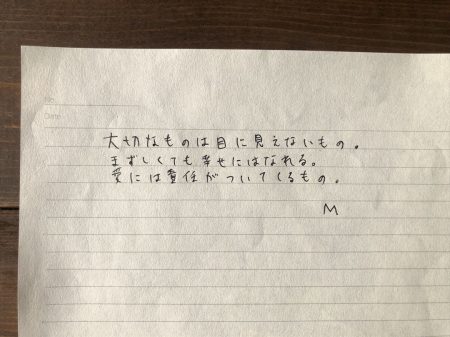 No.
Date
大切なものは目に見えないもの。
まずしくても幸せにはなれる。
愛には責任がついてくるもの。
M